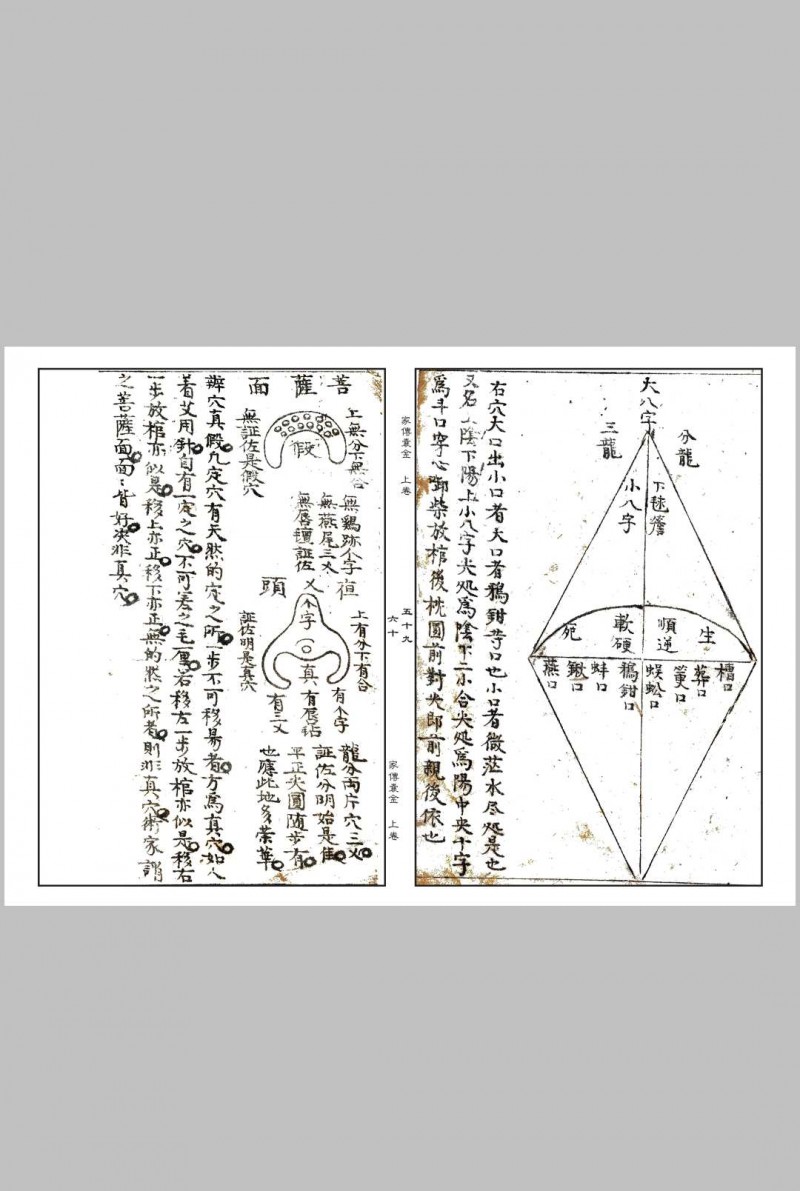 大八字
分龍
三龍
下毬簷
小八字
生
順逆
軟硬
死
槽口
葬口
蜈蚣口
鵝鉗口
蚌口
鍬口
燕口
右穴大口出小口者大口者鵝鉗等口也小口者微茫水尽処是也
又名上陰下陽上小八字尖処為陰下二小合尖処為陽中央十字
為斗口穿心卸柴放棺後枕圓前對尖即前親後依也
家傳袁金 上卷
五十九
六十
家傳袁金 上卷
菩薩面
上無分下無合
假
無証佐是假穴
無鷄跡个字
無燕尾三义
無唇氊証佐
椏义頭
上有分下有合
个字
真
証佐明是真穴
有个字
有唇毡
有三义
龍分兩片穴三义
証佐分明始是佳
平正火圓随步有
也應此地多荣華
辨穴真假凡定穴有天然的定之所一步不可移易者方為真穴如人
着艾用針自有一定之穴不可差之毛厘若移左一步放棺亦似是移右
一步放棺亦似是移上亦正移下亦正無的然之所者則非真穴術家謂
之菩薩面面:皆好决非真穴